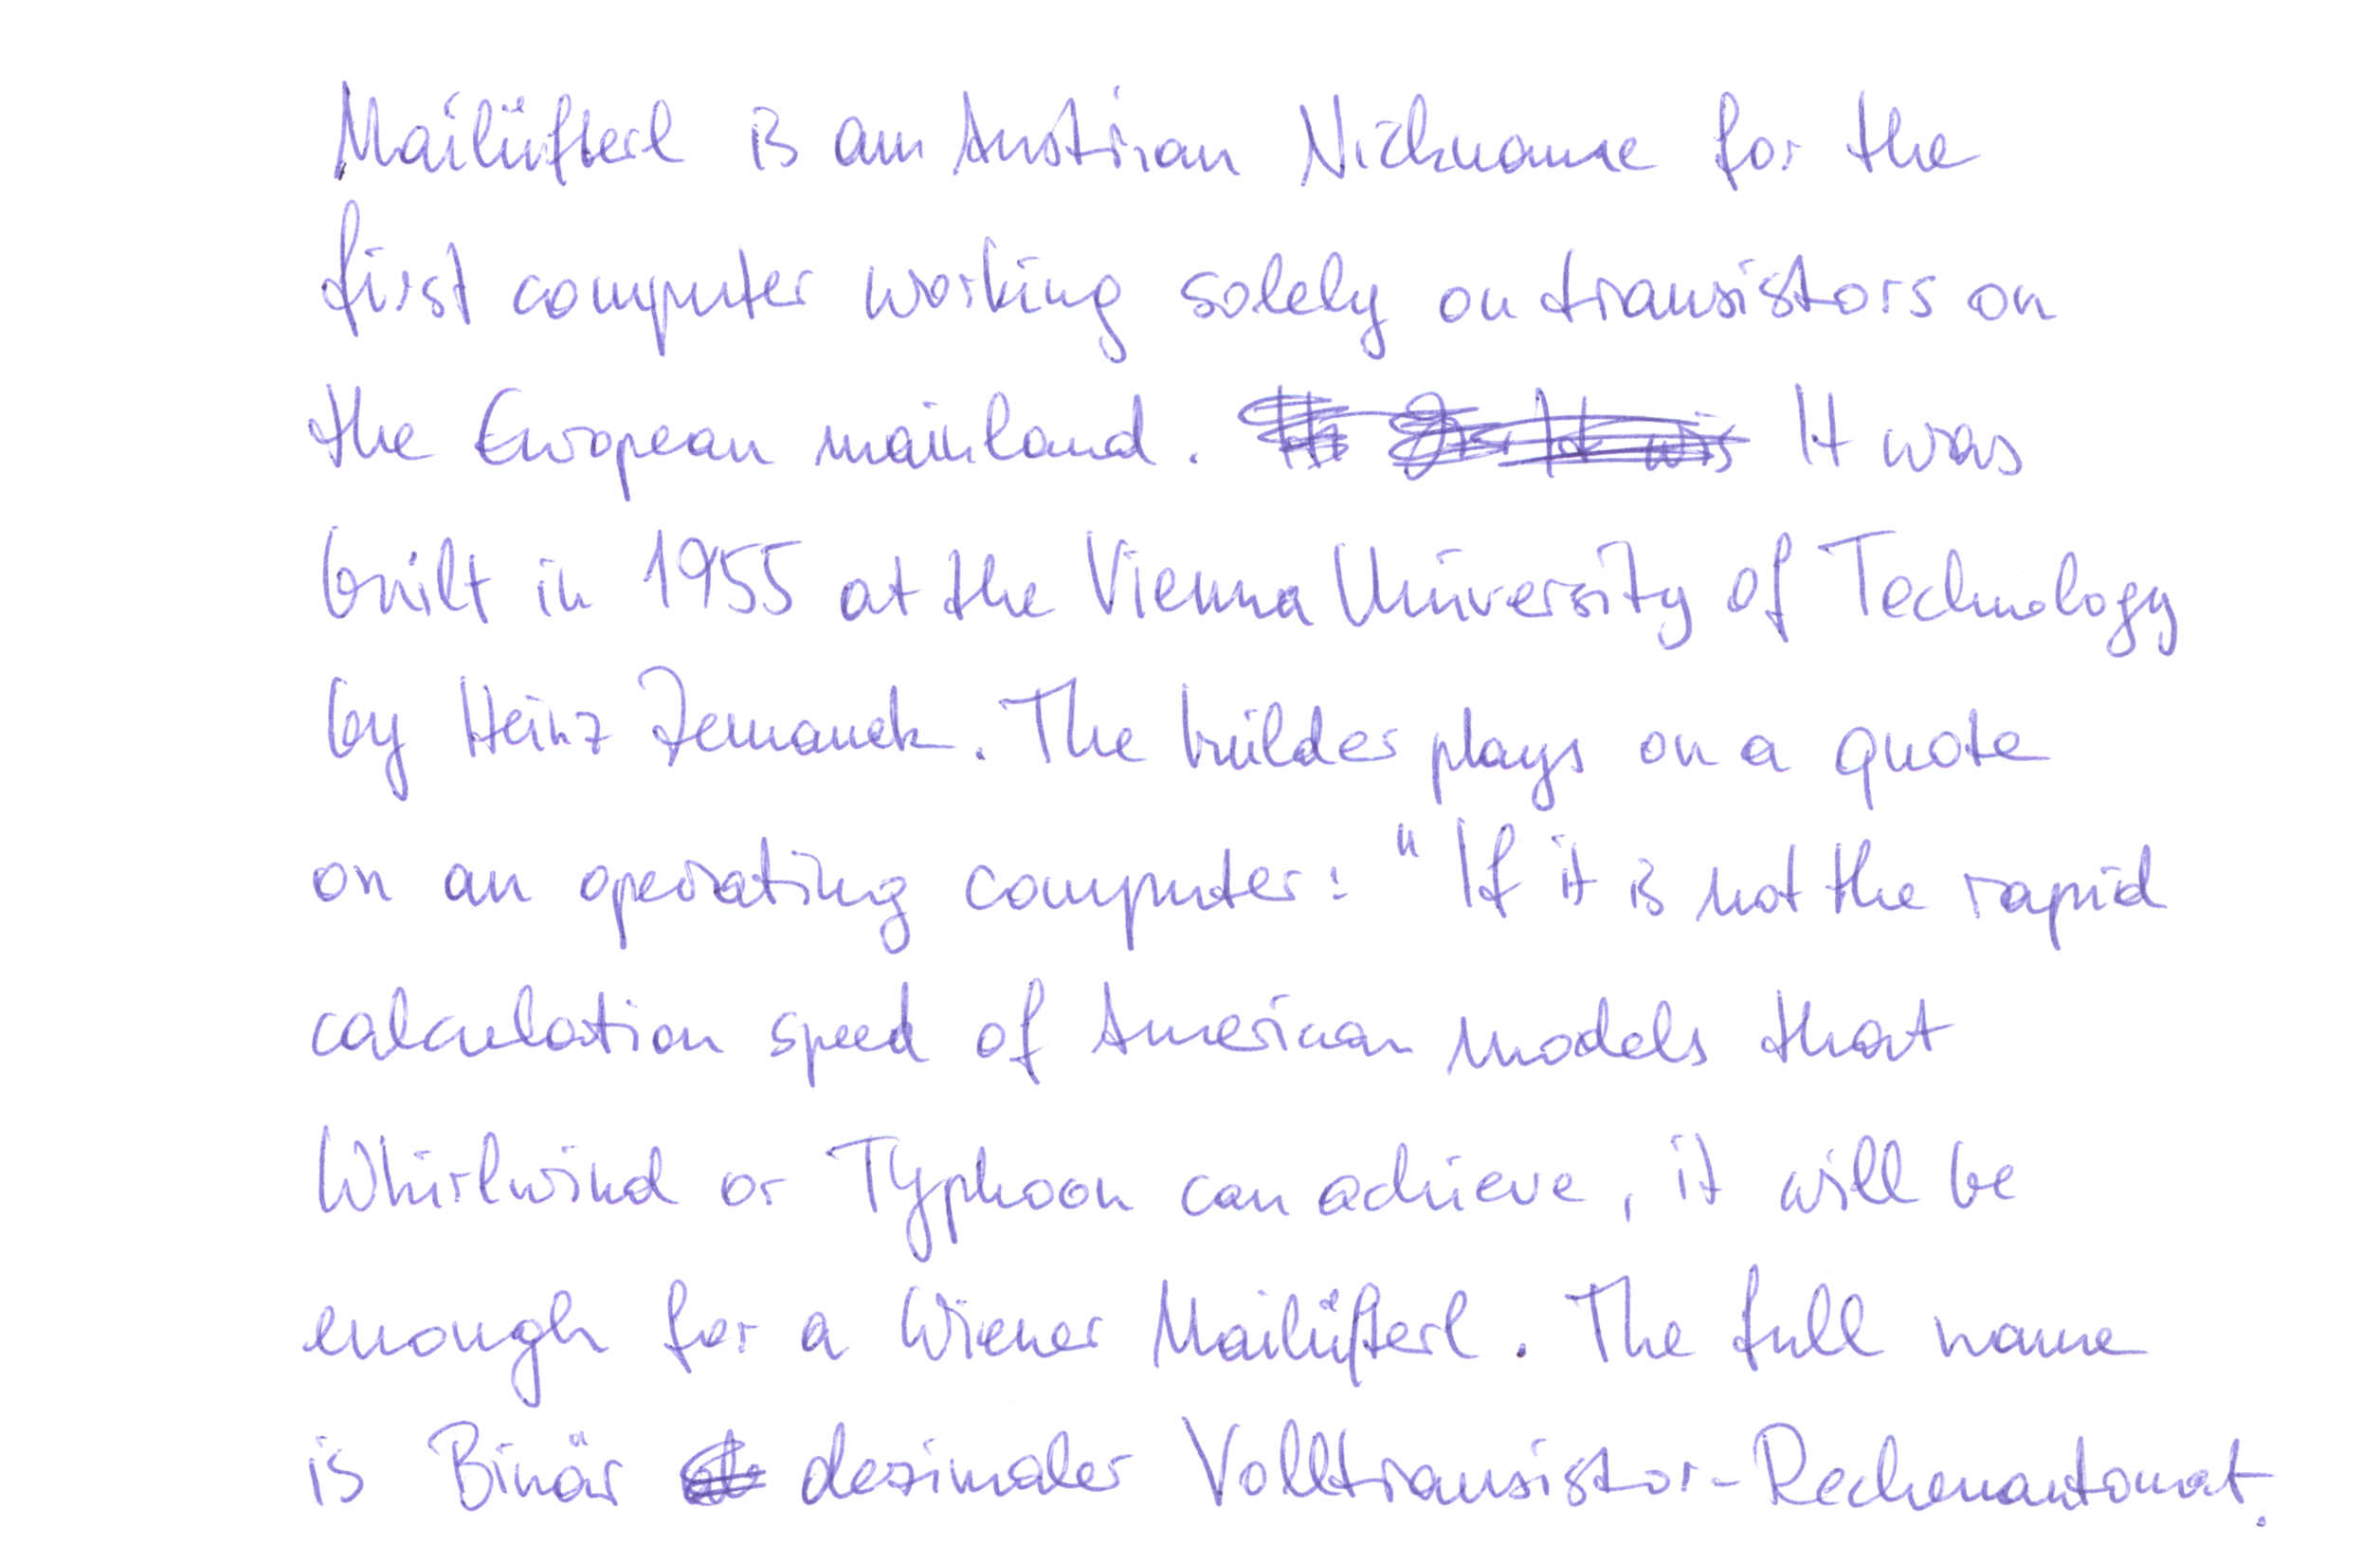 Mailüfterl is an Austrian Nickname for the
first computer working solely on transistors on
the European mainland. It was
built in 1955 at the Vienna University of Technology
by Heinz Zemanek. The builder plays on a quote
on an operating computer: "If it is not the rapid
calculation speed of American models that
Whirlwind or Typhoon can achieve, it will be
enough for a Wiener Mailüfterl. The full name
is Binär dezimaler Volltransistor-Rechenautomat.